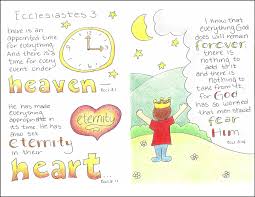 Ecclesiastes 3
there is an
appointed time
for everything.
And there is a
time for every
event under
heaven –
Eccl 3:1
He has made
everything
appropriate in
its time. He has
also set
eternity
in their
heart...
Eccl 3:11
eternity
I know that
everything God
does will remain
forever;
there is
nothing to
add to it
and there is
nothing to
take from it,
for God
has so worked
that men should
fear
Him.
Eccl 3:14